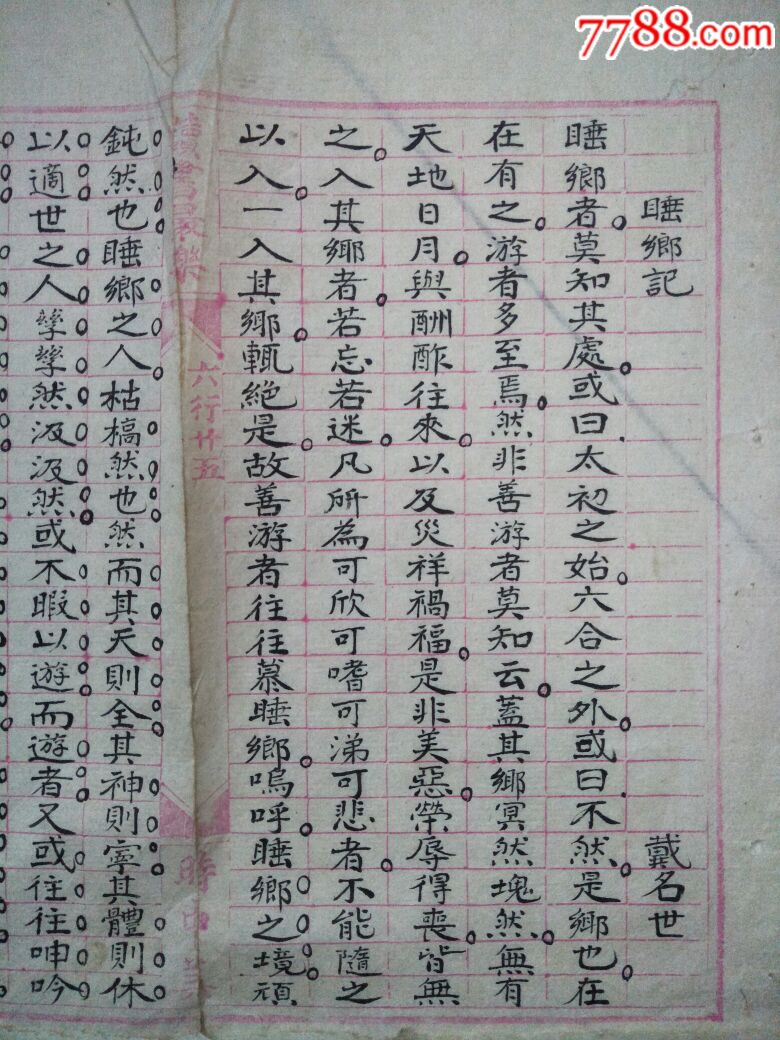 7788.com
睡鄉記　戴名世
睡鄉者。莫知其處。或曰.太初之始。六合之外。或曰.不然。是鄉也。在
在有之。游者多至焉。然非善游者莫知云。蓋其鄉冥然塊然。無有
天地日月。與酬酢往來。以及災祥禍福。是非美惡。榮辱得喪。皆無
之。入其鄉者。若忘若迷。凡所為可欣可嗜可涕可悲者。不能隨之
以入。一入其鄉。輒絕是。故善游者往往慕睡鄉。嗚呼。睡鄉之境。頑
六行廿五
鈍然也睡鄉之人。枯槁然也然而其天則全其神則寧其體則休
以適世之人孳孳然汲汲然。或不暇以遊而遊者又或往往呻吟